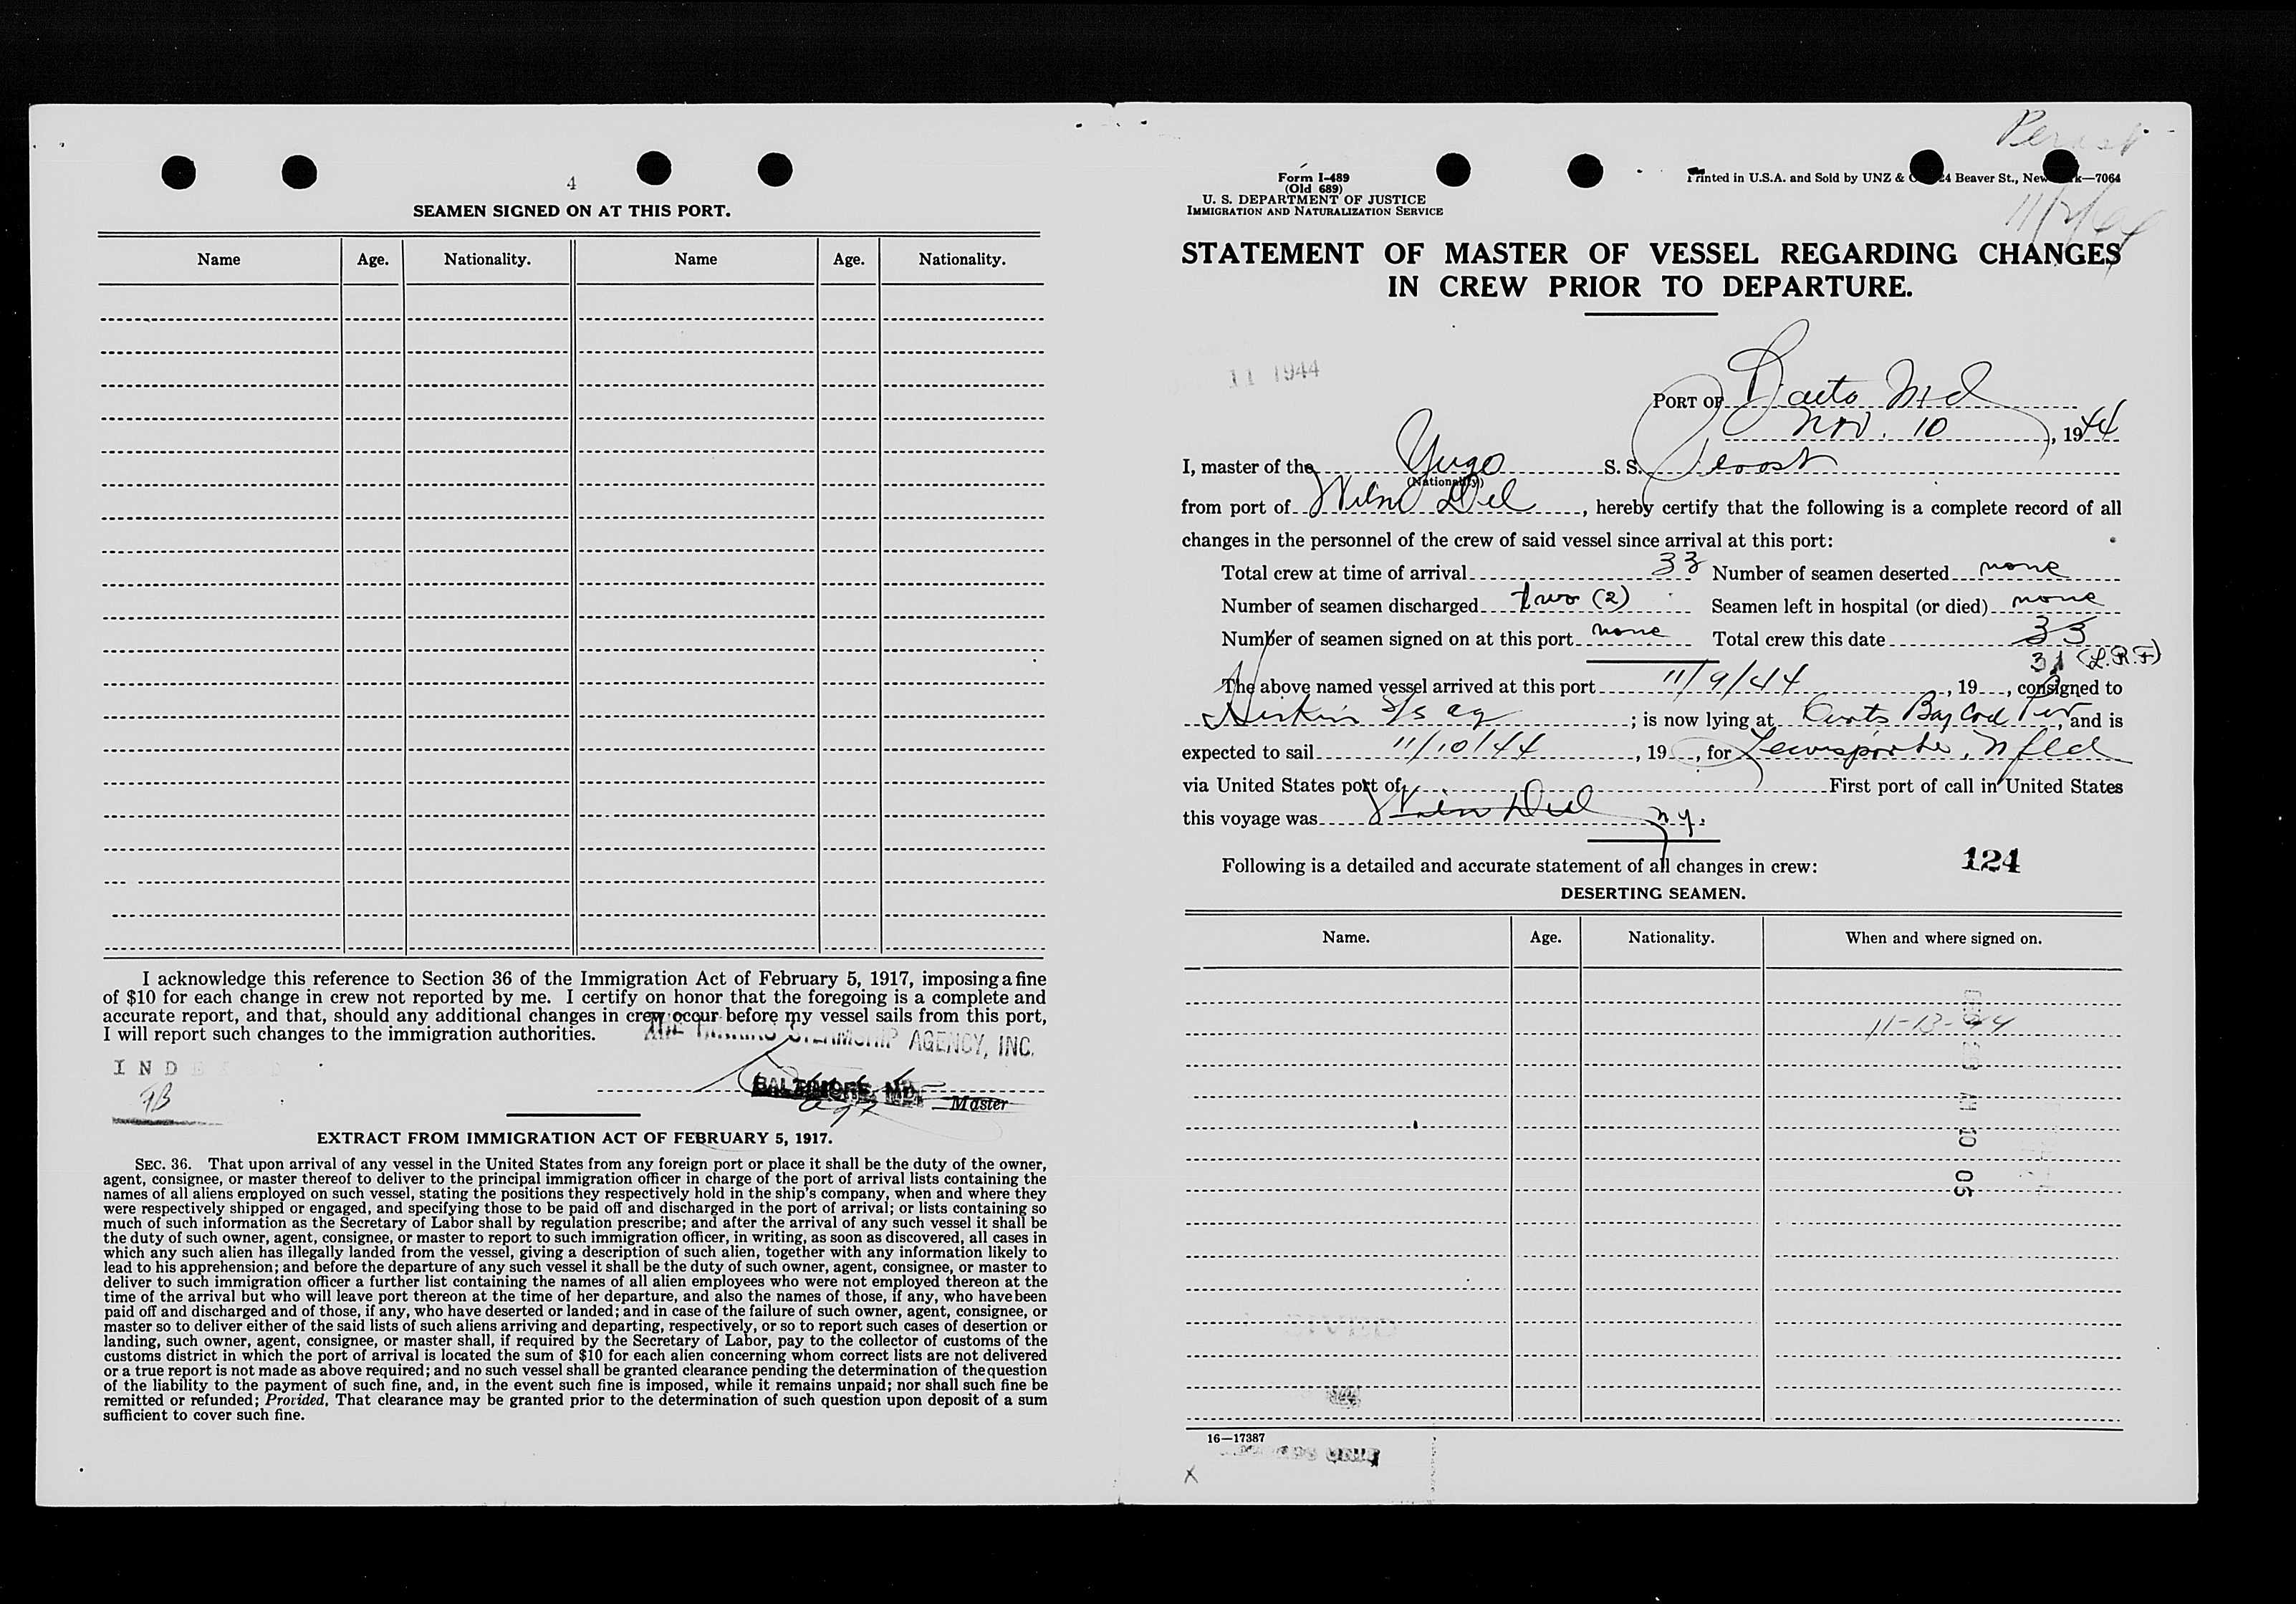 4
SEAMEN SIGNED ON AT THIS PORT.
Name Age. Nationality. Name Age. Nationality.
I acknowledge this reference to Section 36 of the Immigration Act of February 5, 1917, imposing a fine
of $10 for each change in crew not reported by me. I certify on honor that the foregoing is a complete and
accurate report, and that, should any additional changes in crew occur before my vessel sails from this port,
I will report such changes to the immigration authorities.
STEAMSHIP AGENCY, INC.
BALTIMORE, MD.
Master
EXTRACT FROM IMMIGRATION ACT OF FEBRUARY 5, 1917.
SEC. 36. That upon arrival of any vessel in the United States from any foreign port or place it shall be the duty of the owner,
agent, consignee, or master thereof to deliver to the principal immigration officer in charge of the port of arrival lists containing the
names of all aliens employed on such vessel, stating the positions they respectively hold in the ship's company, when and where they
were respectively shipped or engaged, and specifying those to be paid off and discharged in the port of arrival; or lists containing so
much of such information as the Secretary of Labor shall by regulation prescribe; and after the arrival of any such vessel it shall be
the duty of such owner, agent, consignee, or master to report to such immigration officer, in writing, as soon as discovered, all cases in
which any such alien has illegally landed from the vessel, giving a description of such alien, together with any information likely to
lead to his apprehension; and before the departure of any such vessel it shall be the duty of such owner, agent, consignee, or master to
deliver to such immigration officer a further list containing the names of all alien employees who were not employed thereon at the
time of the arrival but who will leave port thereon at the time of her departure, and also the names of those, if any, who have been
paid off and discharged and of those, if any, who have deserted or landed; and in case of the failure of such owner, agent, consignee, or
master so to deliver either of the said lists of such aliens arriving and departing, respectively, or so to report such cases of desertion or
landing, such owner, agent, consignee, or master shall, if required by the Secretary of Labor, pay to the collector of customs of the
customs district in which the port of arrival is located the sum of $10 for each alien concerning whom correct lists are not delivered
or a true report is not made as above required; and no such vessel shall be granted clearance pending the determination of the question
of the liability to the payment of such fine, and, in the event such fine is imposed, while it remains unpaid; nor shall such fine be
remitted or refunded; Provided, That clearance may be granted prior to the determination of such question upon deposit of a sum
sufficient to cover such fine.
Form I-489
(Old 689)
U. S. DEPARTMENT OF JUSTICE
IMMIGRATION AND NATURALIZATION SERVICE
Printed in U.S.A. and Sold by UNZ & Beaver St., New —7064
STATEMENT OF MASTER OF VESSEL REGARDING CHANGES
IN CREW PRIOR TO DEPARTURE.
11 1944
PORT OF Balto Md
Nov. 10, 1944
I, master of the Yugo S. S.
(Nationality)
from port of Wilm Del, hereby certify that the following is a complete record of all
changes in the personnel of the crew of said vessel since arrival at this port:
Total crew at time of arrival 33 Number of seamen deserted none
Number of seamen discharged two (2) Seamen left in hospital (or died) none
Number of seamen signed on at this port none Total crew this date 33
31 (L.R.F)
The above named vessel arrived at this port 11/9/44, 19, consigned to
S/S ag; is now lying at Curtis Bay Coal Pier, and is
expected to sail 11/10/44, 19, for Lewisporte, Nfld
via United States port of First port of call in United States
this voyage was Wilm Del N.Y.
Following is a detailed and accurate statement of all changes in crew: 124
DESERTING SEAMEN.
Name. Age. Nationality. When and where signed on.
11-13-44
16—17387
X